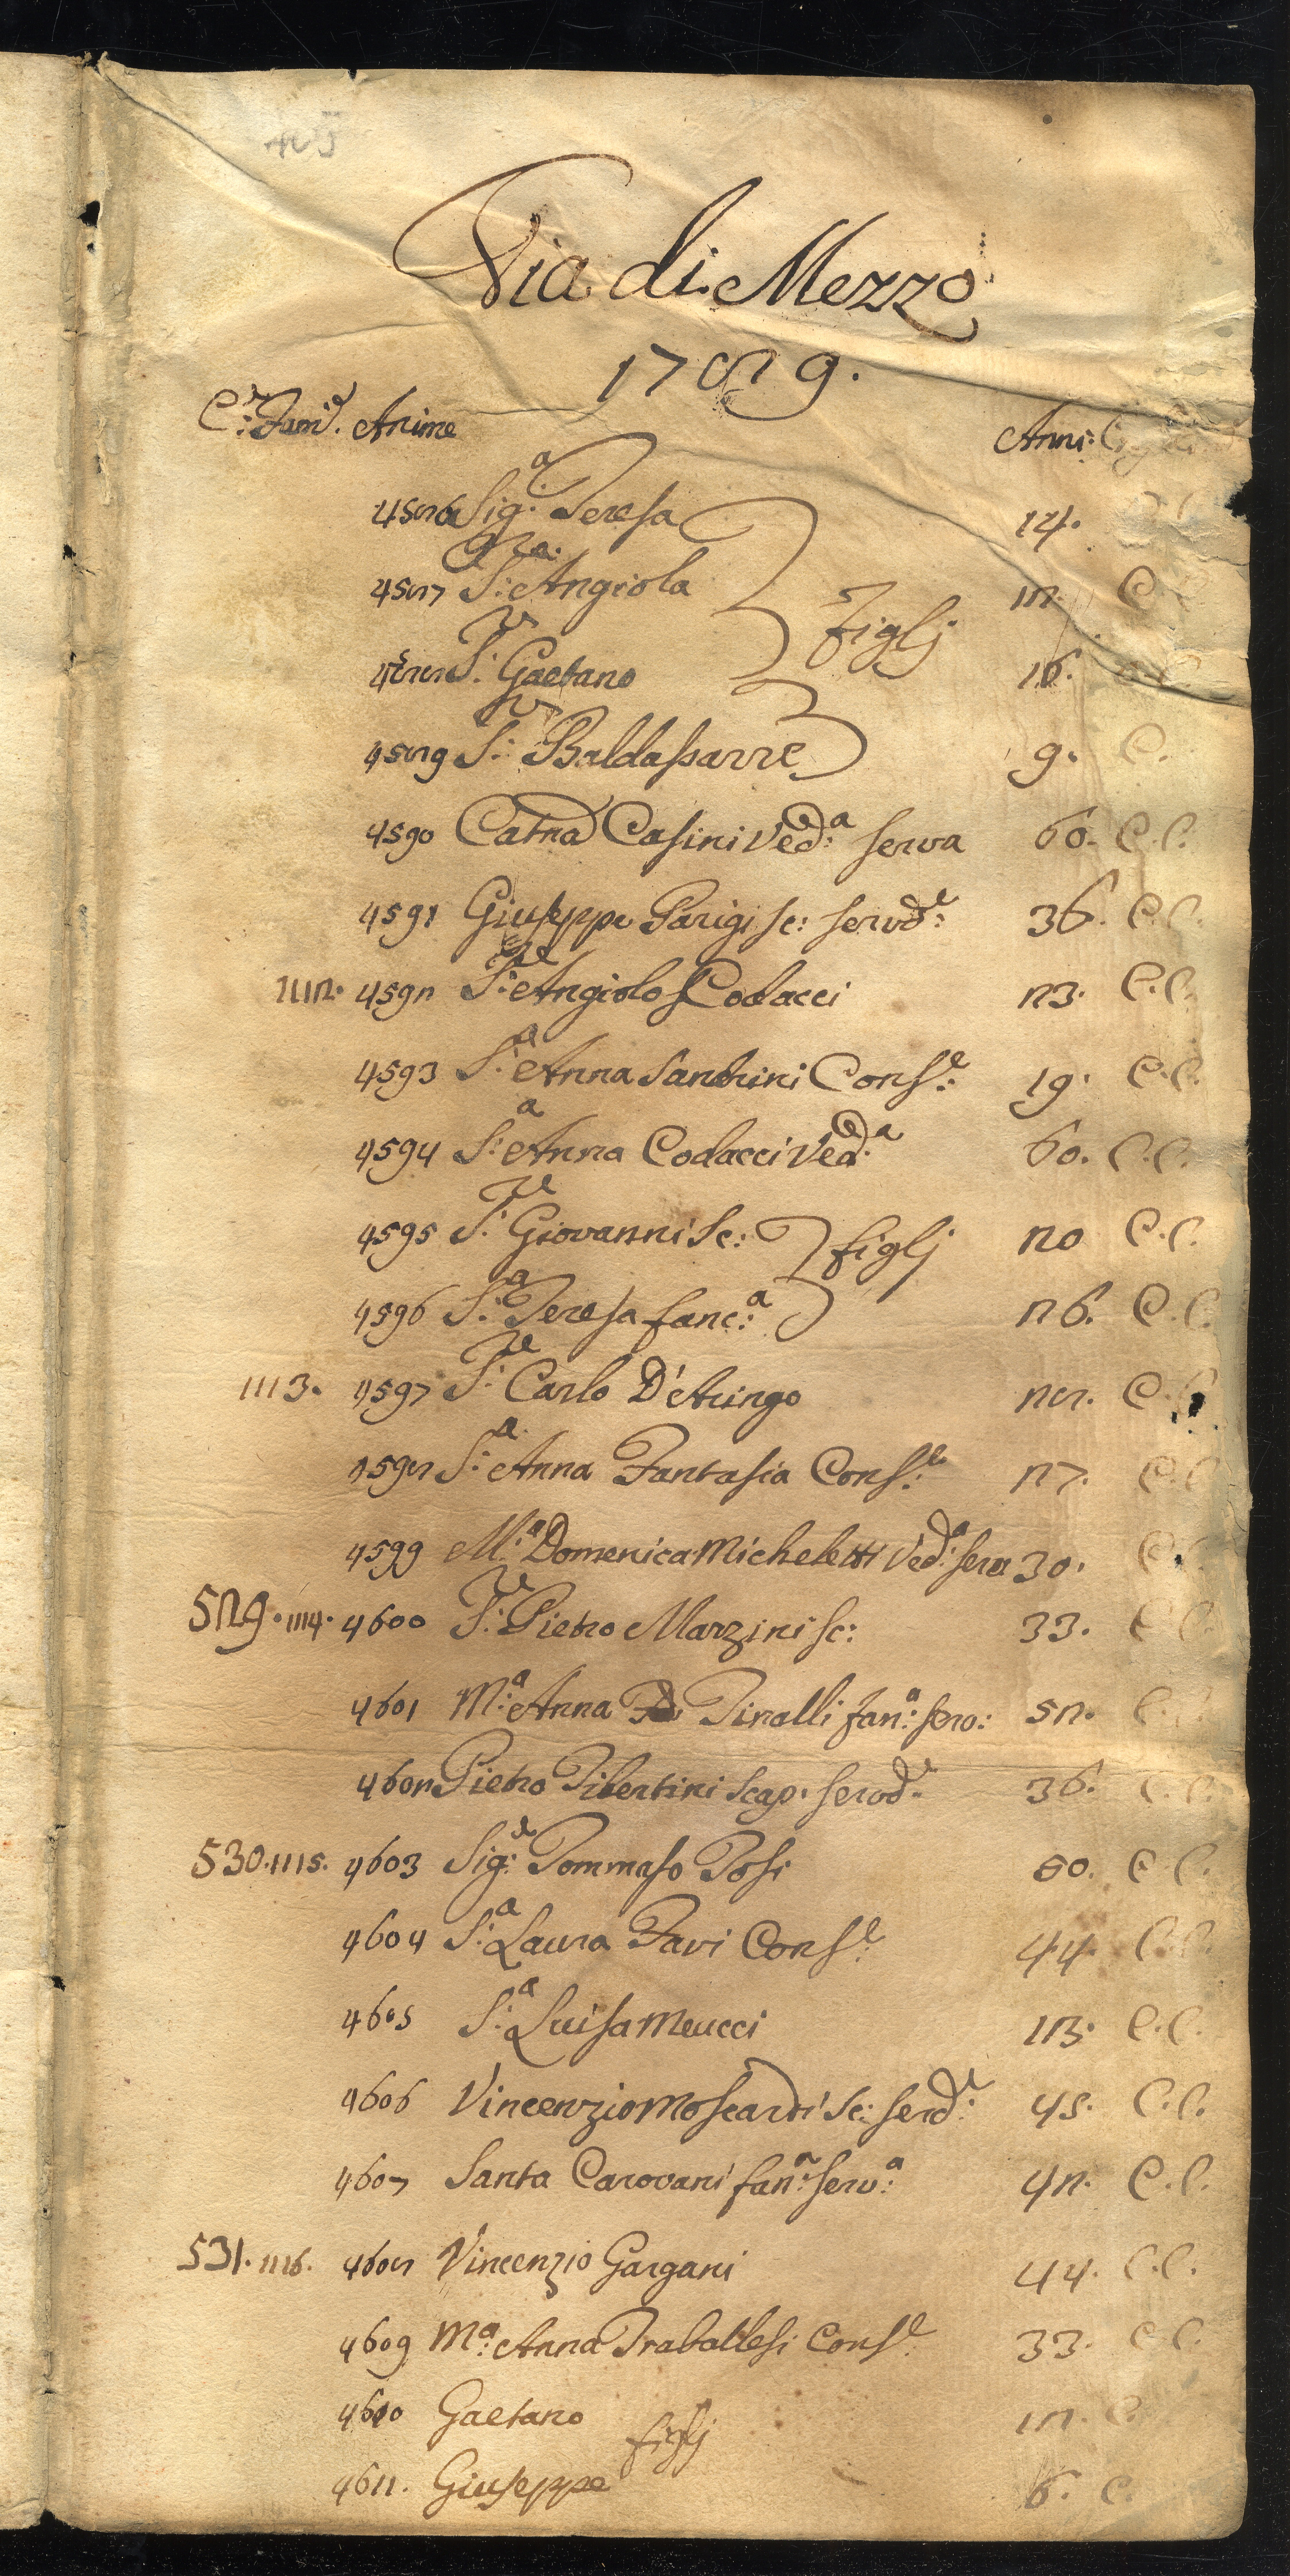 Via di Mezzo
1789.
C.e Fam.e Anime Anni:
4586 Sig.a Teresa 14.
4587 S.a Angiola 12. C.
4588 S.r Gaetano figlj
4589 S.r Baldassarre 9. C.
4590 Catna Casini Ved.a serva 60. C.C.
4591 Giuseppe Parigi sc: servd.e 36. C.C.
1112. 4592 S.re Angiolo Codacci 23. C.C.
4593 S.a Anna Santrini Cons.e: 19. C.C.
4594 S.a Anna Codacci Ved.a 60. C.C.
4595 S.re Giovanni Sc: figlj 20 C.C.
4596 S.a Teresa fanc.a 26. C.C.
1113. 4597 S.re Carlo D'Aringo 28. C.C.
4598 S.a Anna Fantasia Cons.e 27. C.C.
4599 M.a Domenica Micheletti Ved.a serva 30. C.
529. 1114. 4600 S.re Pietro Marzini sc: 33. C.C.
4601 M.a Anna Tinalli fan.a serv: 52. C.
4602 Pietro Tibertini Scap. servd.e 36. C.C.
530. 1115. 4603 Sig.re Tommaso Posi 50. C.C.
4604 S.a Laura Favi Cons.e 44. C.C.
4605 S.a Luisa Meucci C.C.
4606 Vincenzio Moscardi Sc: serd.e 45. C.C.
4607 Santa Carovani fan.a serv.a 42. C.C.
531. 1116. 4608 Vincenzio Gargani 44. C.C.
4609 M.a Anna Traballesi Cons.e 33. C.C.
4610 Gaetano figlj 12. C.
4611. Giuseppe 6. C.